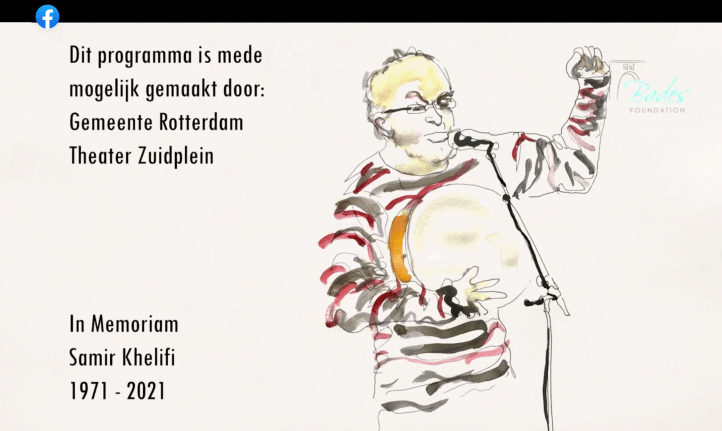 Dit programma is mede
mogelijk gemaakt door:
Gemeente Rotterdam
Theater Zuidplein
Bades
FOUNDATION
In Memoriam
Samir Khelifi
1971 - 2021